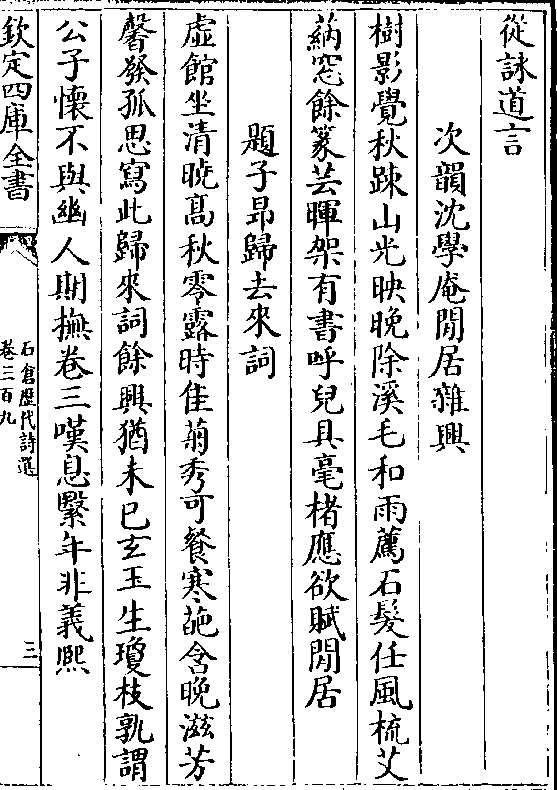 從詠道言
次韻沈學庵閒居雜興
樹影覺秋踈山光映晚除溪毛和雨薦石髮任風梳艾
蒳窓餘篆芸暉架有書呼兒具毫楮應欲賦閒居
題子昻歸去來詞
虛館坐清曉髙秋零露時佳菊秀可餐寒葩含晚滋芳
馨發孤思寫此歸來詞餘興猶未已玄玉生瓊枝孰謂
公子懷不與幽人期撫卷三嘆息繫年非義熙
欽定四庫全書
石倉歷代詩選
卷三百九
三